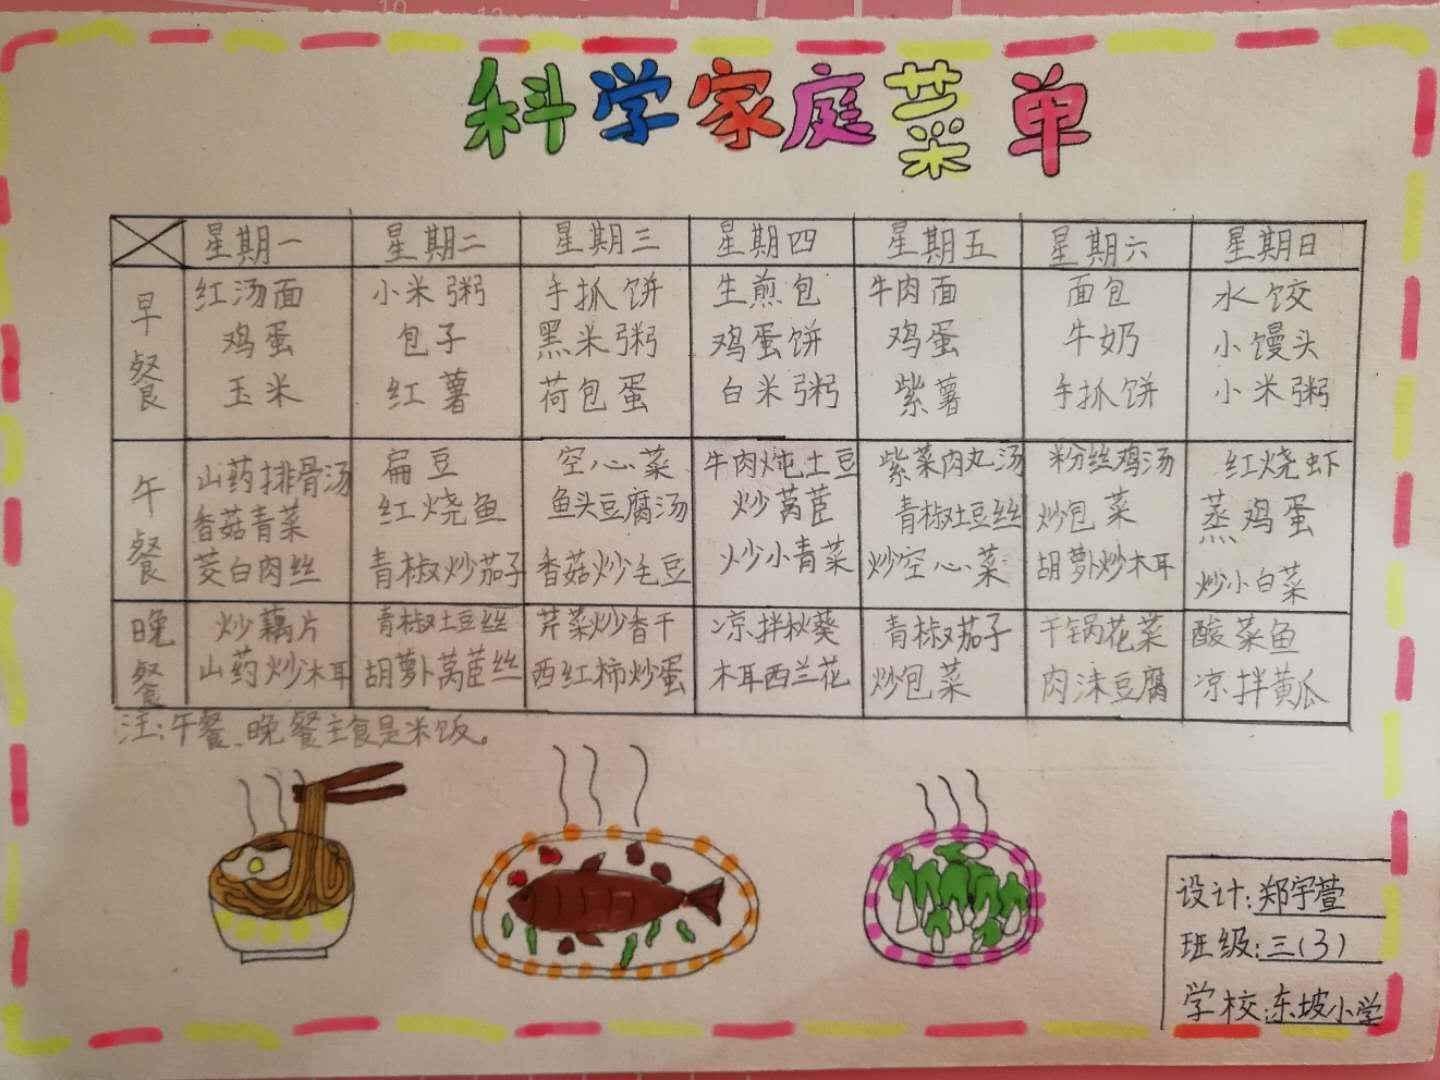 科学家庭菜单
星期一 星期二 星期三 星期四 星期五 星期六 星期日
早餐
红汤面 小米粥 手抓饼 生煎包 牛肉面 面包 水饺
鸡蛋 包子 黑米粥 鸡蛋饼 鸡蛋 牛奶 小馒头
玉米 红薯 荷包蛋 白米粥 紫薯 手抓饼 小米粥
午餐
山药排骨汤 扁豆 空心菜 牛肉炖土豆 紫菜肉丸汤 粉丝鸡汤 红烧虾
香菇青菜 红烧鱼 鱼头豆腐汤 炒莴苣 青椒土豆丝 炒包菜 蒸鸡蛋
茭白肉丝 青椒炒茄子 香菇炒毛豆 炒小青菜 炒空心菜 胡萝卜炒木耳 炒小白菜
晚餐
炒藕片 青椒土豆丝 芹菜炒香干 凉拌秋葵 青椒茄子 干锅花菜 酸菜鱼
山药炒木耳 胡萝卜莴苣丝 西红柿炒蛋 木耳西兰花 炒包菜 肉沫豆腐 凉拌黄瓜
注:午餐、晚餐主食是米饭。
设计:郑宇萱
班级:三(3)
学校:东坡小学